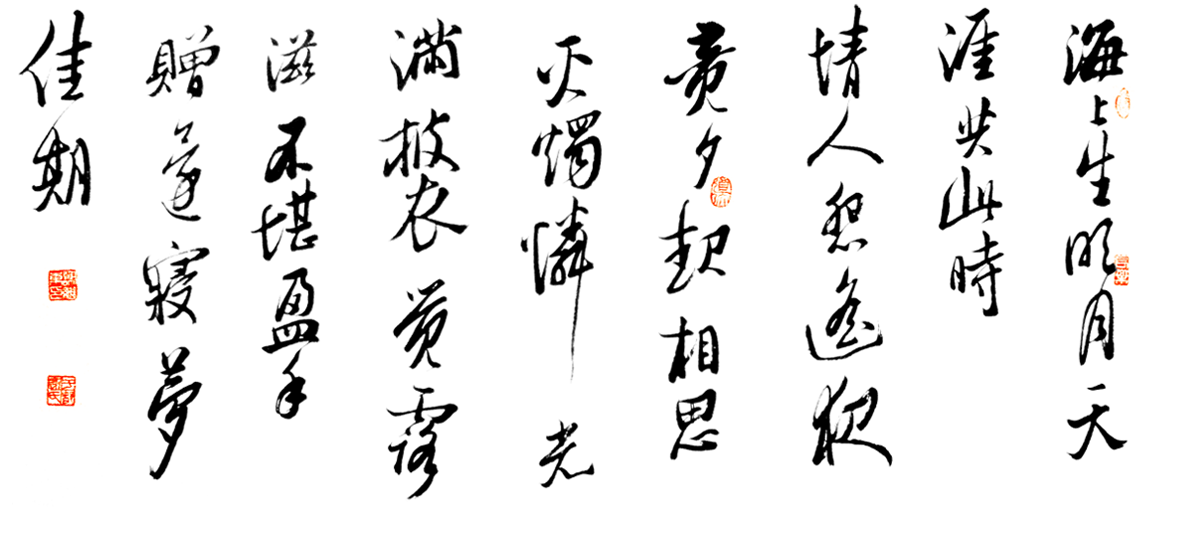 海上生明月天
涯共此時
情人怨遙夜
竟夕起相思
灭燭憐光
滿披衣覺露
滋不堪盈手
贈還寢夢
佳期